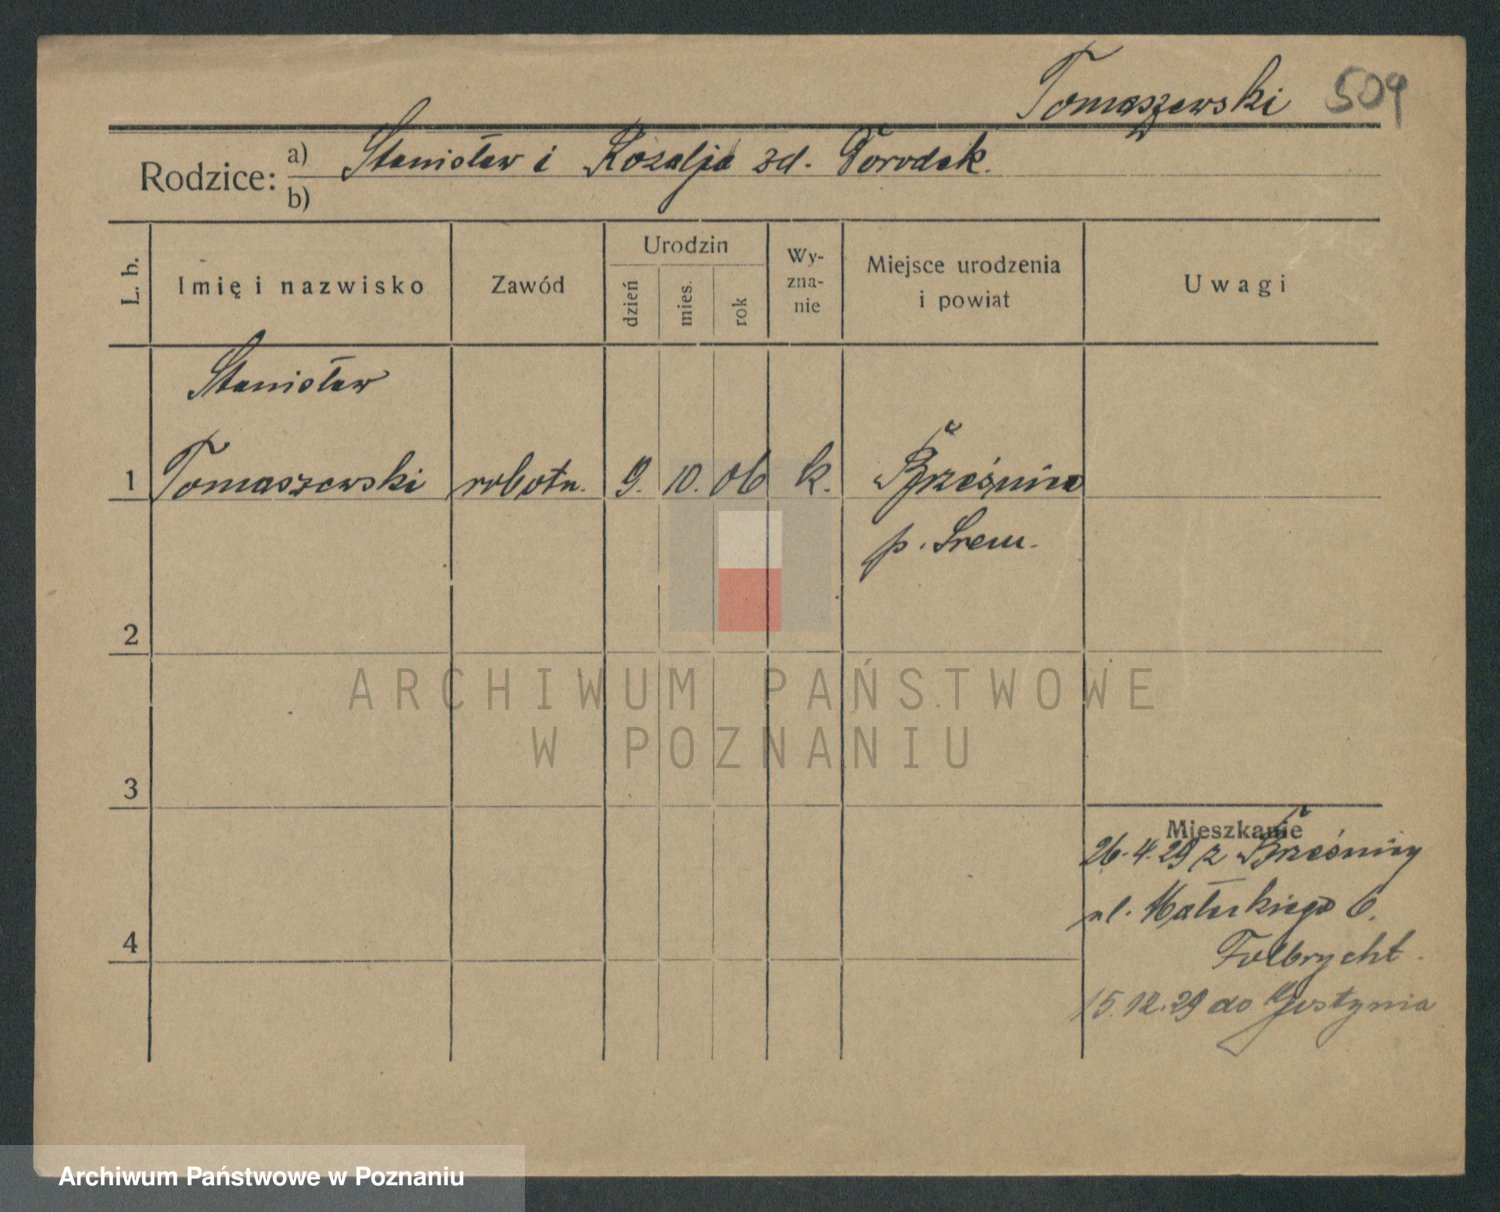 Tomaszewski 509
Rodzice: a) Stanisław i Rozalja zd.
b)
L. b. Imię i nazwisko Zawód Urodzin dzień mies. rok Wy-zna-nie Miejsce urodzenia i powiat Uwagi
Stanisław
1 Tomaszewski robotn. 9. 10. 06 k. Brześnica
p. Śrem.
2
ARCHIWUM PAŃSTWOWE
W POZNANIU
3
Mieszkanie
26.4.29 z Brześnicy
4 ul. 6.
Folbrycht.
15.12.29 do Gostynia
Archiwum Państwowe w Poznaniu